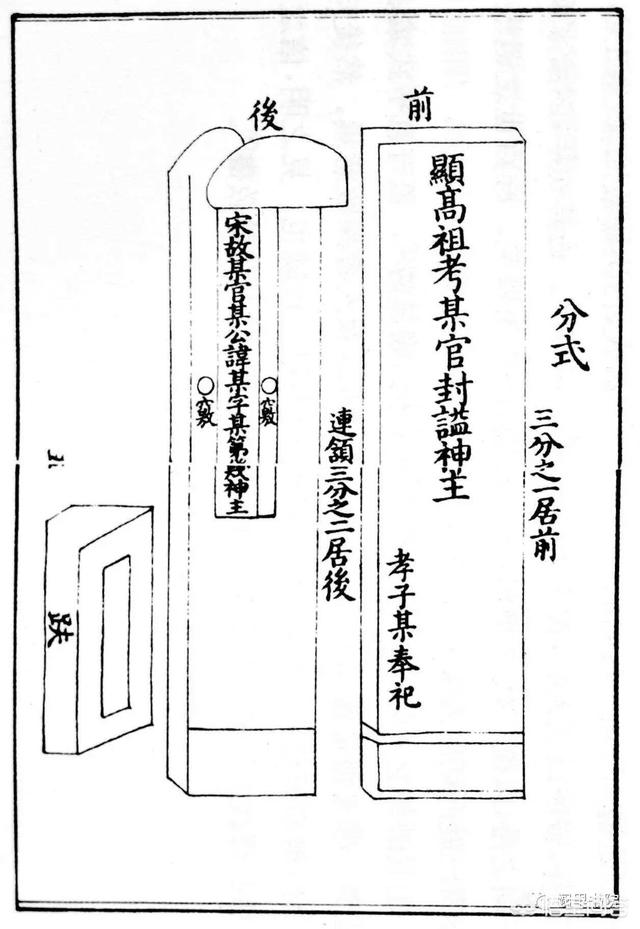 分式
三分之一居前
前
顯高祖考某官封謚神主
孝子某奉祀
後
連領三分之二居後
宋故某官某公諱某字某第幾神主
穴數
穴數
趺